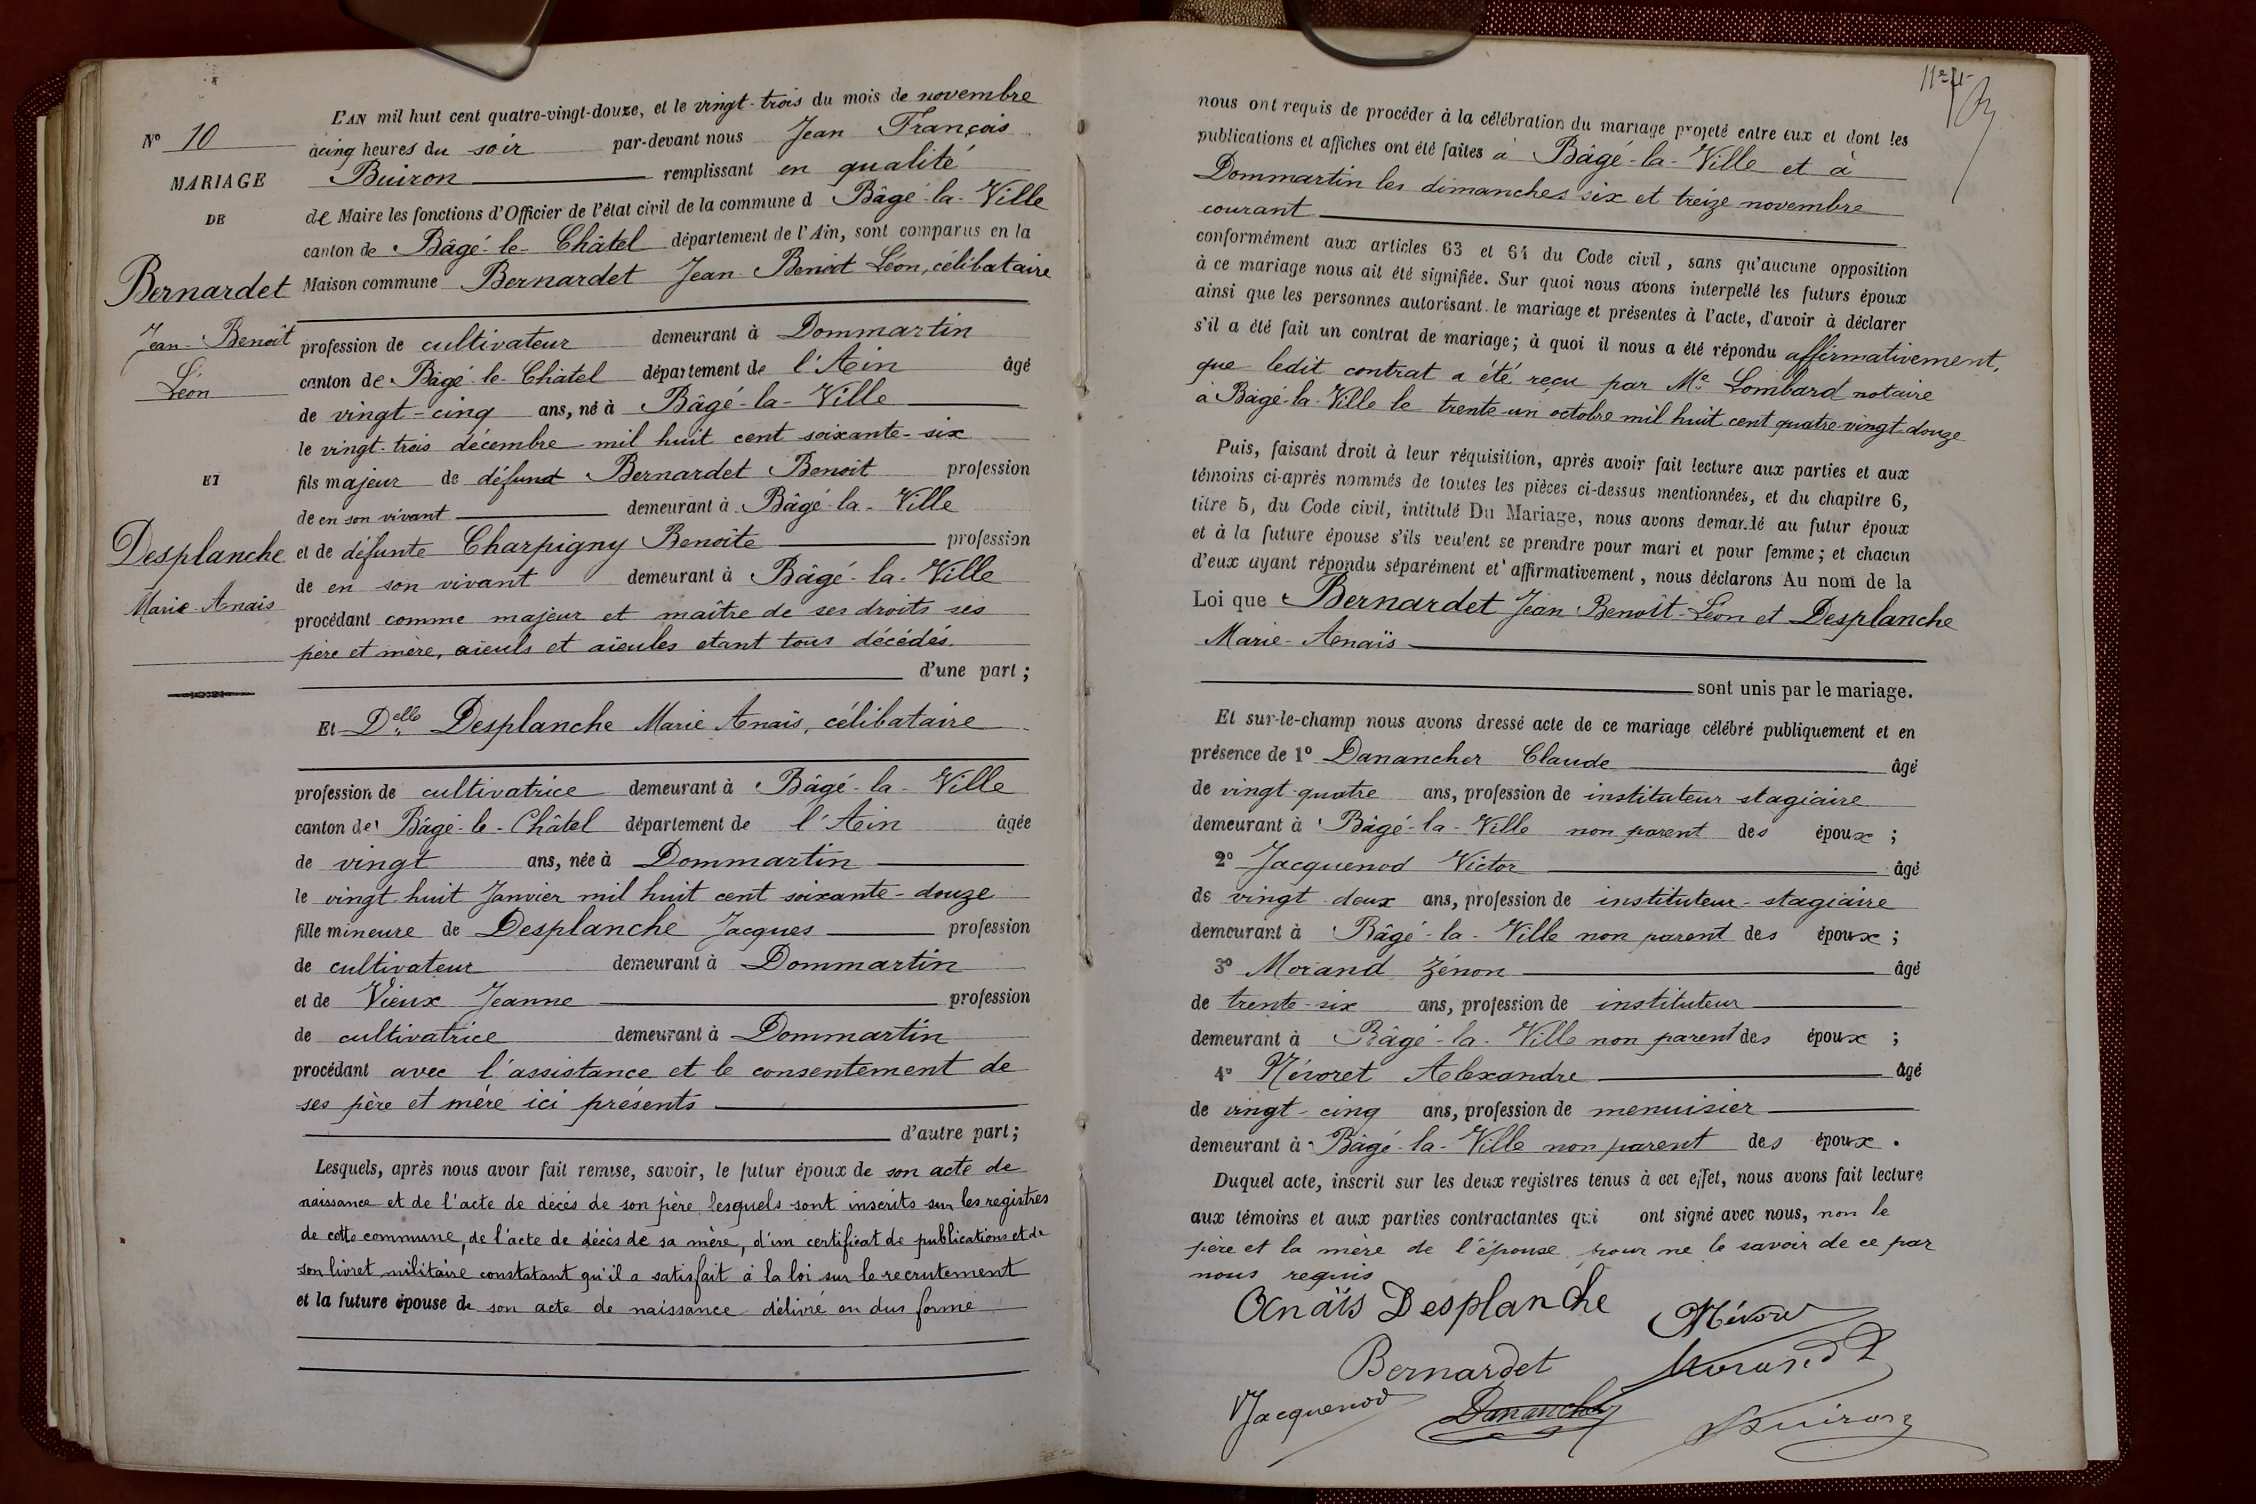 Nº 10
MARIAGE
DE
Bernardet
Jean-Benoît
Léon
ET
Desplanche
Marie-Anaïs
L'AN mil huit cent quatre-vingt-douze, et le vingt-trois du mois de novembre
à cinq heures du soir par-devant nous Jean François
Buiron remplissant en qualité
de Maire les fonctions d'Officier de l'état civil de la commune d Bâgé-la-Ville
canton de Bâgé-le-Châtel département de l'Ain, sont comparus en la
Maison commune Bernardet Jean-Benoît Léon, célibataire
profession de cultivateur demeurant à Dommartin
canton de Bâgé-le-Châtel département de l'Ain âgé
de vingt-cinq ans, né à Bâgé-la-Ville
le vingt-trois décembre mil huit cent soixante-six
fils majeur de défunt Bernardet Benoit profession
de en son vivant demeurant à Bâgé-la-Ville
et de défunte Charpigny Benoîte profession
de en son vivant demeurant à Bâgé-la-Ville
procédant comme majeur et maître de ses droits ses
père et mère, aïeuls et aïeules etant tous décédés.
d'une part ;
Et Delle Desplanche Marie Anaïs, célibataire
profession de cultivatrice demeurant à Bâgé-la-Ville
canton de Bâgé-le-Châtel département de l'Ain âgée
de vingt ans, née à Dommartin
le vingt huit Janvier mil huit cent soixante-douze
fille mineure de Desplanche Jacques profession
de cultivateur demeurant à Dommartin
et de Vieux Jeanne profession
de cultivatrice demeurant à Dommartin
procédant avec l'assistance et le consentement de
ses père et mère ici présents
d'autre part ;
Lesquels, après nous avoir fait remise, savoir, le futur époux de son acte de
naissance et de l'acte de décès de son père lesquels sont inscrits sur les registres
de cette commune, de l'acte de décès de sa mère, d'un certificat de publications et de
son livret militaire constatant qu'il a satisfait à la loi sur le recrutement
et la future épouse de son acte de naissance délivré en due forme
nous ont requis de procéder à la célébration du mariage projeté entre eux et dont les
publications et affiches ont été faites à Bâgé-la-Ville et à
Dommartin les dimanches six et treize novembre
courant
conformément aux articles 63 et 64 du Code civil, sans qu'aucune opposition
à ce mariage nous ait été signifiée. Sur quoi nous avons interpellé les futurs époux
ainsi que les personnes autorisant le mariage et présentes à l'acte, d'avoir à déclarer
s'il a été fait un contrat de mariage ; à quoi il nous a été répondu affirmativement,
que ledit contrat a été reçu par Me Lombard notaire
à Bâgé-la-Ville le trente-un octobre mil huit cent quatre-vingt-douze
Puis, faisant droit à leur réquisition, après avoir fait lecture aux parties et aux
témoins ci-après nommés de toutes les pièces ci-dessus mentionnées, et du chapitre 6,
titre 5, du Code civil, intitulé Du Mariage, nous avons demandé au futur époux
et à la future épouse s'ils veulent se prendre pour mari et pour femme ; et chacun
d'eux ayant répondu séparément et affirmativement, nous déclarons Au nom de la
Loi que Bernardet Jean Benoît-Léon et Desplanche
Marie-Anaïs
sont unis par le mariage.
Et sur-le-champ nous avons dressé acte de ce mariage célébré publiquement et en
présence de 1º Danancher Claude âgé
de vingt-quatre ans, profession de instituteur stagiaire
demeurant à Bâgé-la-Ville non parent des époux ;
2º Jacquenod Victor âgé
de vingt-deux ans, profession de instituteur-stagiaire
demeurant à Bâgé-la-Ville non parent des époux ;
3º Morand Zénon âgé
de trente-six ans, profession de instituteur
demeurant à Bâgé-la-Ville non parent des époux ;
4º Névoret Alexandre âgé
de vingt-cinq ans, profession de menuisier
demeurant à Bâgé-la-Ville non parent des époux.
Duquel acte, inscrit sur les deux registres tenus à cet effet, nous avons fait lecture
aux témoins et aux parties contractantes qui ont signé avec nous, non le
père et la mère de l'épouse pour ne le savoir de ce par
nous requis
Anaïs Desplanche
Bernardet
Morand Z
VJacquenod
Danancher
Buiron